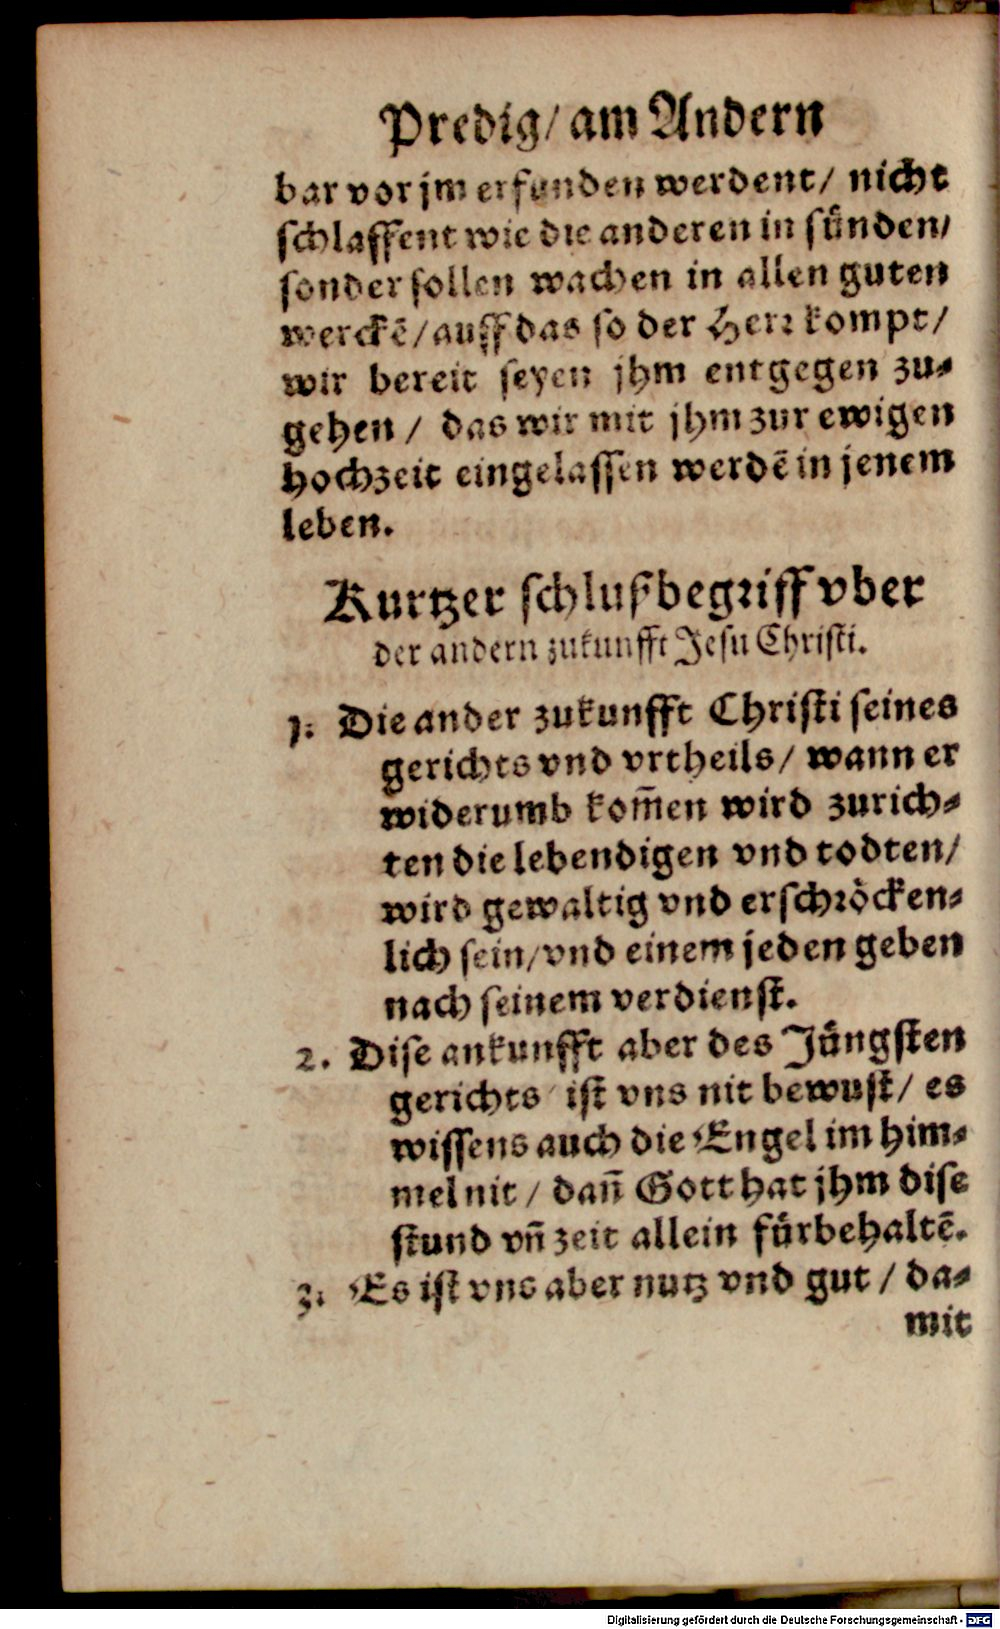 Predig/ am Andern
bar vor jm erfunden werdent/ nicht
schlaffent wie die anderen in sünden/
sonder sollen wachen in allen guten
werckē/ auff das so der Herr kompt/
wir bereit seyen jhm entgegen zu-
gehen / das wir mit jhm zur ewigen
hochzeit eingelassen werdē in jenem
leben.
Kurtzer schlußbegriff vber
der andern zukunfft Jesu Christi.
1. Die ander zukunfft Christi seines
gerichts vnd vrtheils/ wann er
widerumb kom̄en wird zurich-
ten die lebendigen vnd todten/
wird gewaltig vnd erschröcken-
lich sein/ vnd einem jeden geben
nach seinem verdienst.
2. Dise ankunfft aber des Jüngsten
gerichts/ ist vns nit bewust/ es
wissens auch die Engel im him-
mel nit / dañ Gott hat jhm dise
stund vñ zeit allein fürbehaltē.
3. Es ist vns aber nutz vnd gut / da-
mit
Digitalisierung gefördert durch die Deutsche Forschungsgemeinschaft - DFG